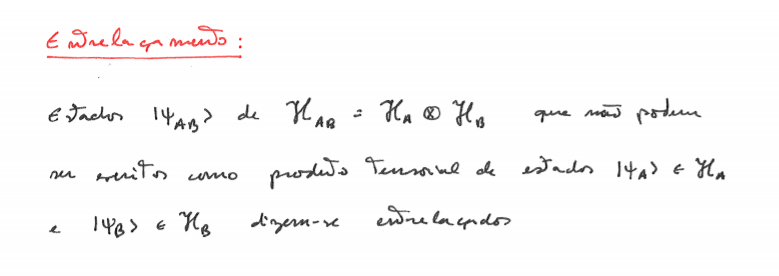 Entrelaçamento:
Estados |ψ_AB> de ℋ_AB = ℋ_A ⊗ ℋ_B que não podem
ser escritos como produto tensorial de estados |ψ_A> ∈ ℋ_A
e |ψ_B> ∈ ℋ_B dizem-se entrelaçados